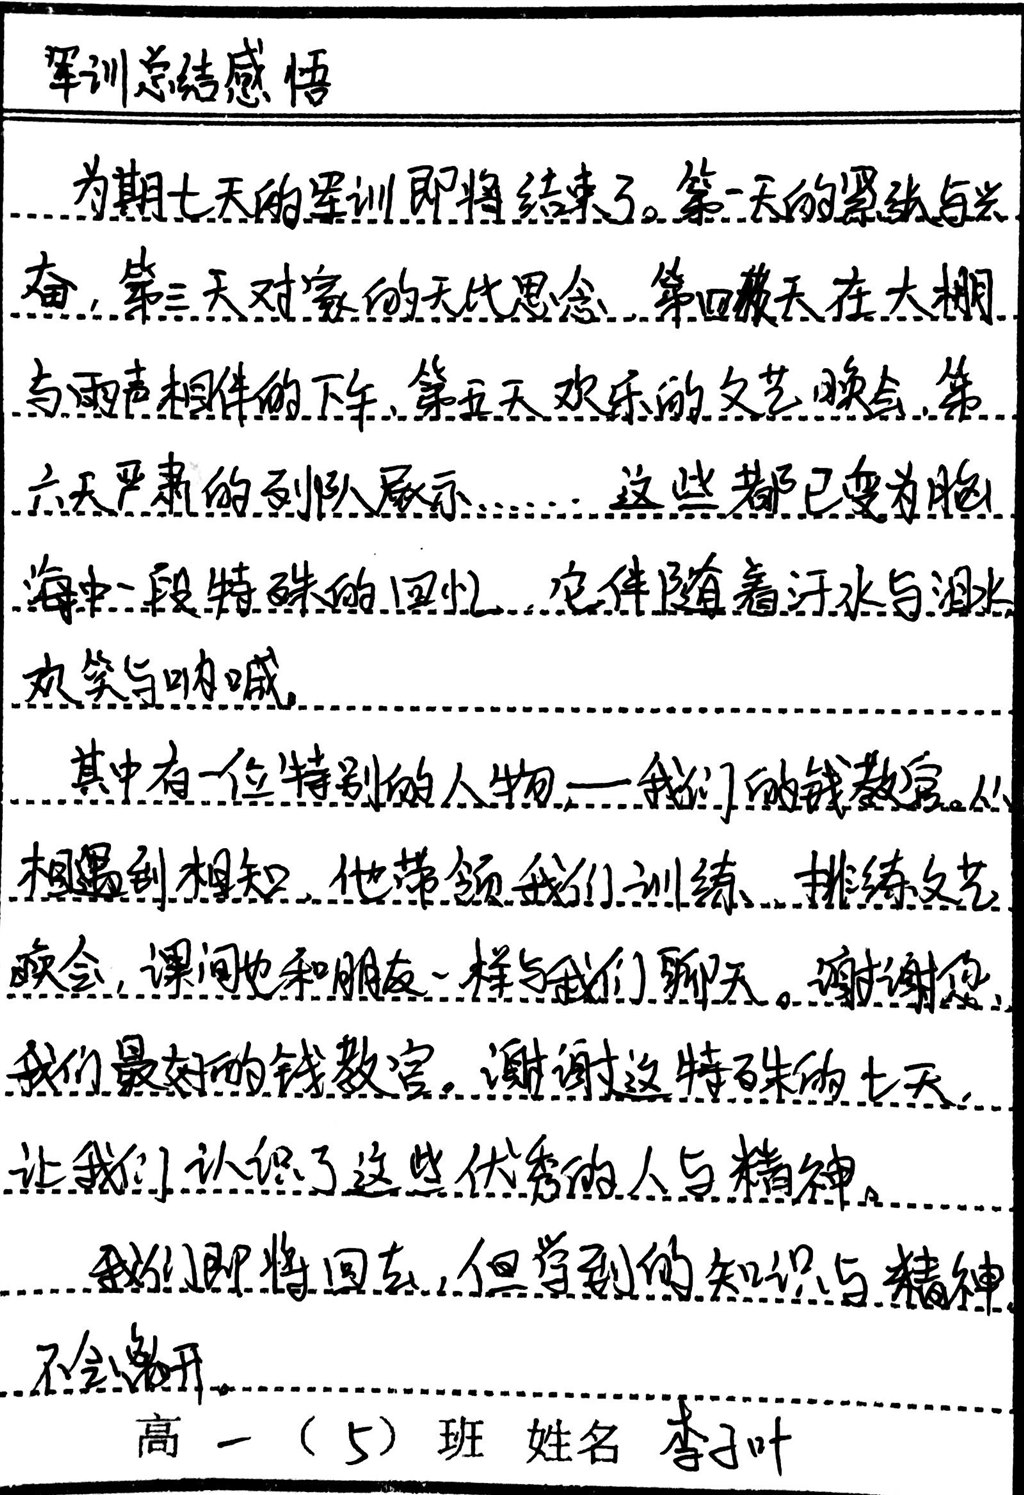 军训总结感悟
为期七天的军训即将结束了。第一天的紧张与兴
奋，第三天对家的无比思念、第四天在大棚
与雨声相伴的下午、第五天欢乐的文艺晚会、第
六天严肃的列队展示……这些都已变为脑
海中一段特殊的回忆，它伴随着汗水与泪水、
欢笑与呐喊。
其中有一位特别的人物——我们的钱教官。从
相遇到相知，他带领我们训练、排练文艺
晚会，课间也和朋友一样与我们聊天。谢谢您，
我们最好的钱教官。谢谢这特殊的七天，
让我们认识了这些优秀的人与精神。
我们即将回去，但学到的知识与精神
不会离开。
高一（5）班 姓名 李子叶